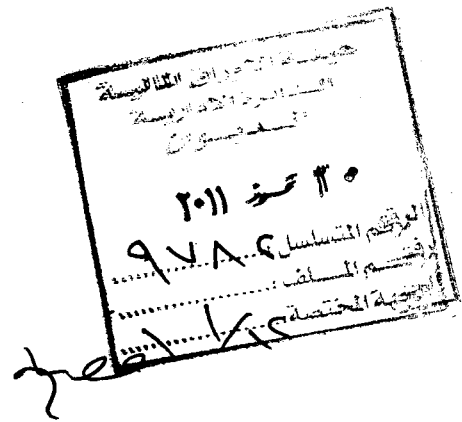 هيئة الاوراق المالية
الدائرة الادارية
الديوان
٣٠ تموز ٢٠١١
الرقم المتسلسل ٩٧٨٤
رقم الملف
الجهة المختصة